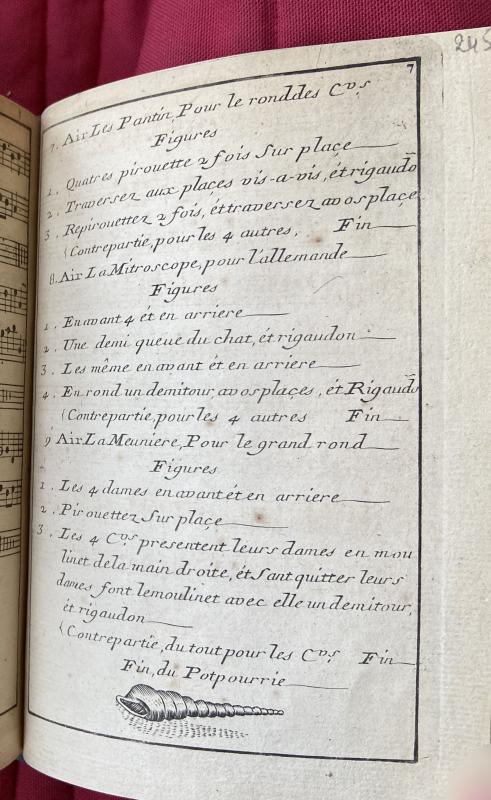 245
7
7. Air Les Pantin, Pour le rond des C.vs
Figures
1. Quatres pirouette 2 fois Sur plaçe
2. Traversez aux plaçes vis-a-vis, ét rigaudō
3. Repirouettez 2 fois, ét traversez a vos plaçe
(Contrepartie, pour les 4 autres. Fin
8. Air La Mitroscope, pour l'allemande
Figures
1. En avant 4 ét en arriere
2. Une demi queue du chat, ét rigaudon
3. Les même en avant ét en arriere
4. En rond un demi tour, a vos plaçes, ét Rigaudō
(Contrepartie, pour les 4 autres Fin
9 Air La Meuniere, Pour le grand rond
Figures
1. Les 4 dames en avant ét en arriere
2. Pirouettez Sur plaçe
3. Les 4 C.vs presentent leurs dames en mou
linet de la main droite, ét Sant quitter leurs
dames font le moulinet avec elle un demi tour,
ét rigaudon
(Contrepartie, du tout pour les C.vs Fin
Fin, du Potpourrie